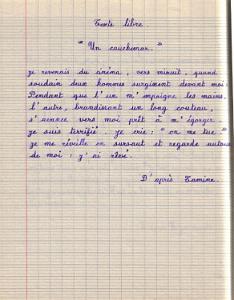 Texte libre.
" Un cauchemar. "
Je revenais du cinéma, vers minuit, quand
soudain deux hommes surgirent devant moi.
Pendant que l'un m'empoigne les mains
l'autre, brandissant un long couteau,
s'avance vers moi prêt à m'égorger.
je suis terrifié. je crie : " on me tue "
je me réveille en sursaut et regarde autour
de moi : j'ai rêvé.
D'après Lamine.